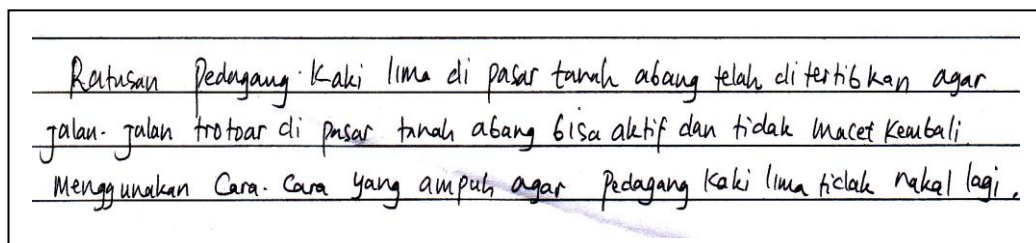 Ratusan Pedagang Kaki lima di pasar tanah abang telah ditertibkan agar
jalan-jalan trotoar di pasar tanah abang bisa aktif dan tidak macet kembali.
Menggunakan Cara-Cara yang ampuh agar Pedagang Kaki lima tidak nakal lagi.